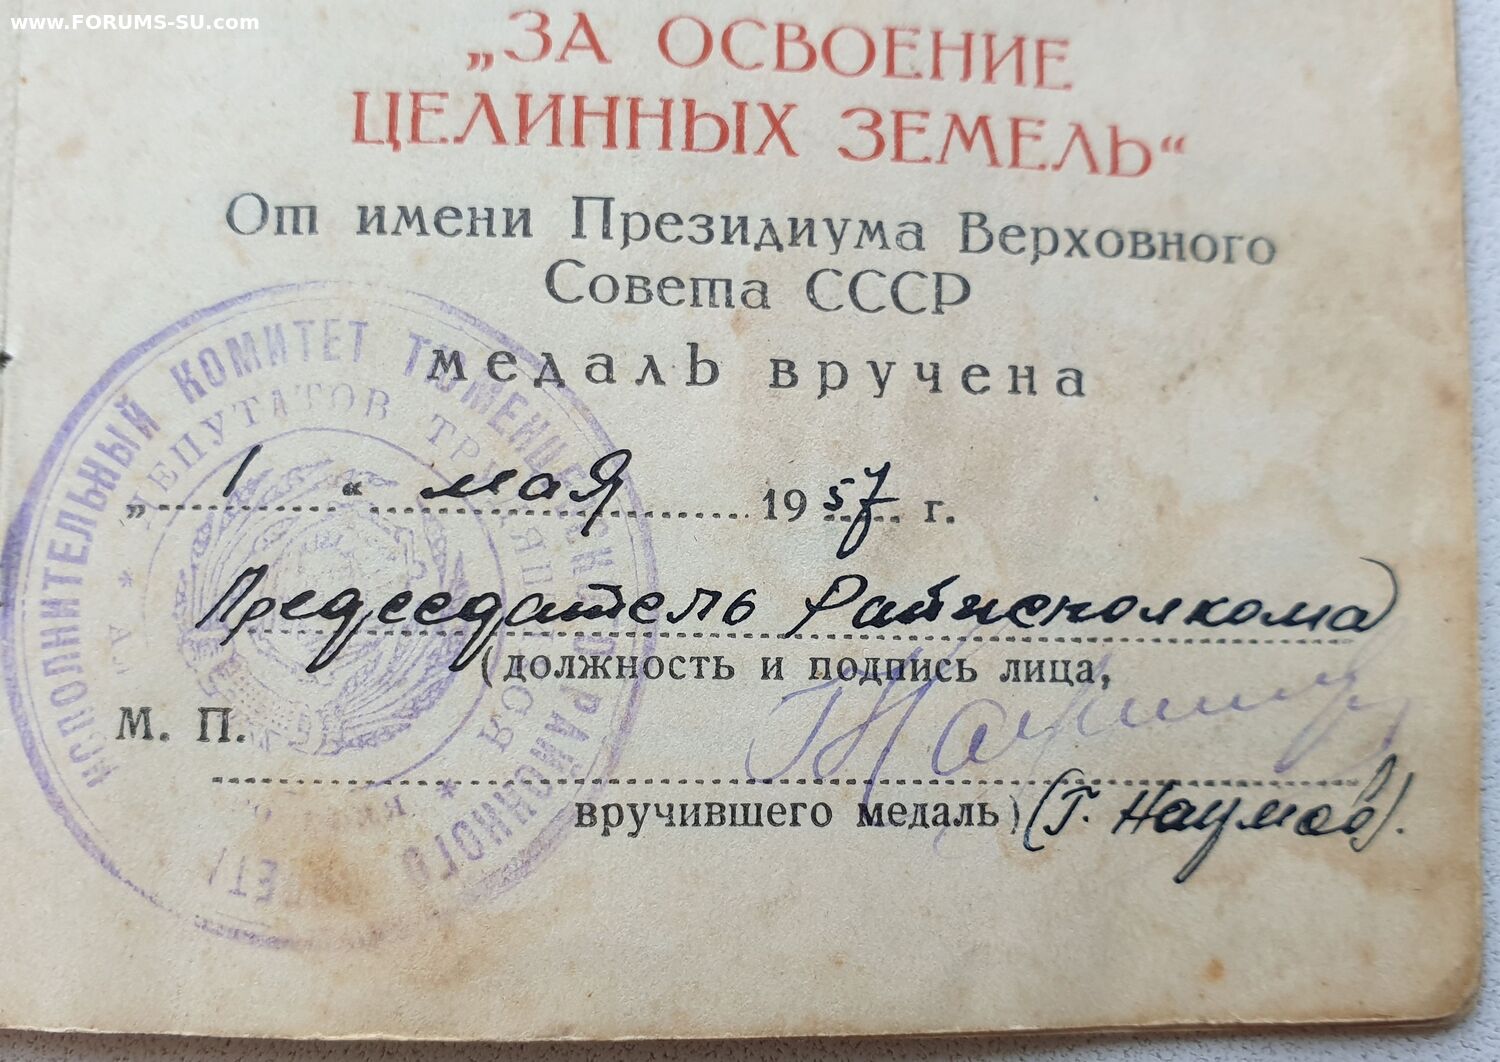 www.FORUMS-SU.com
„ЗА ОСВОЕНИЕ
ЦЕЛИННЫХ ЗЕМЕЛЬ“
От имени Президиума Верховного
Совета СССР
медаль вручена
„ 1 “ мая 1957 г.
Председатель Райисполкома
(должность и подпись лица,
М. П.
вручившего медаль) (Г. Наумов).
ИСПОЛНИТЕЛЬНЫЙ КОМИТЕТ ТЮМЕНЦЕВСКОГО РАЙОННОГО
ДЕПУТАТОВ ТРУДЯЩИХСЯ